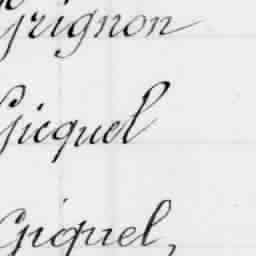 Grignon
Gicquel
Giquel,